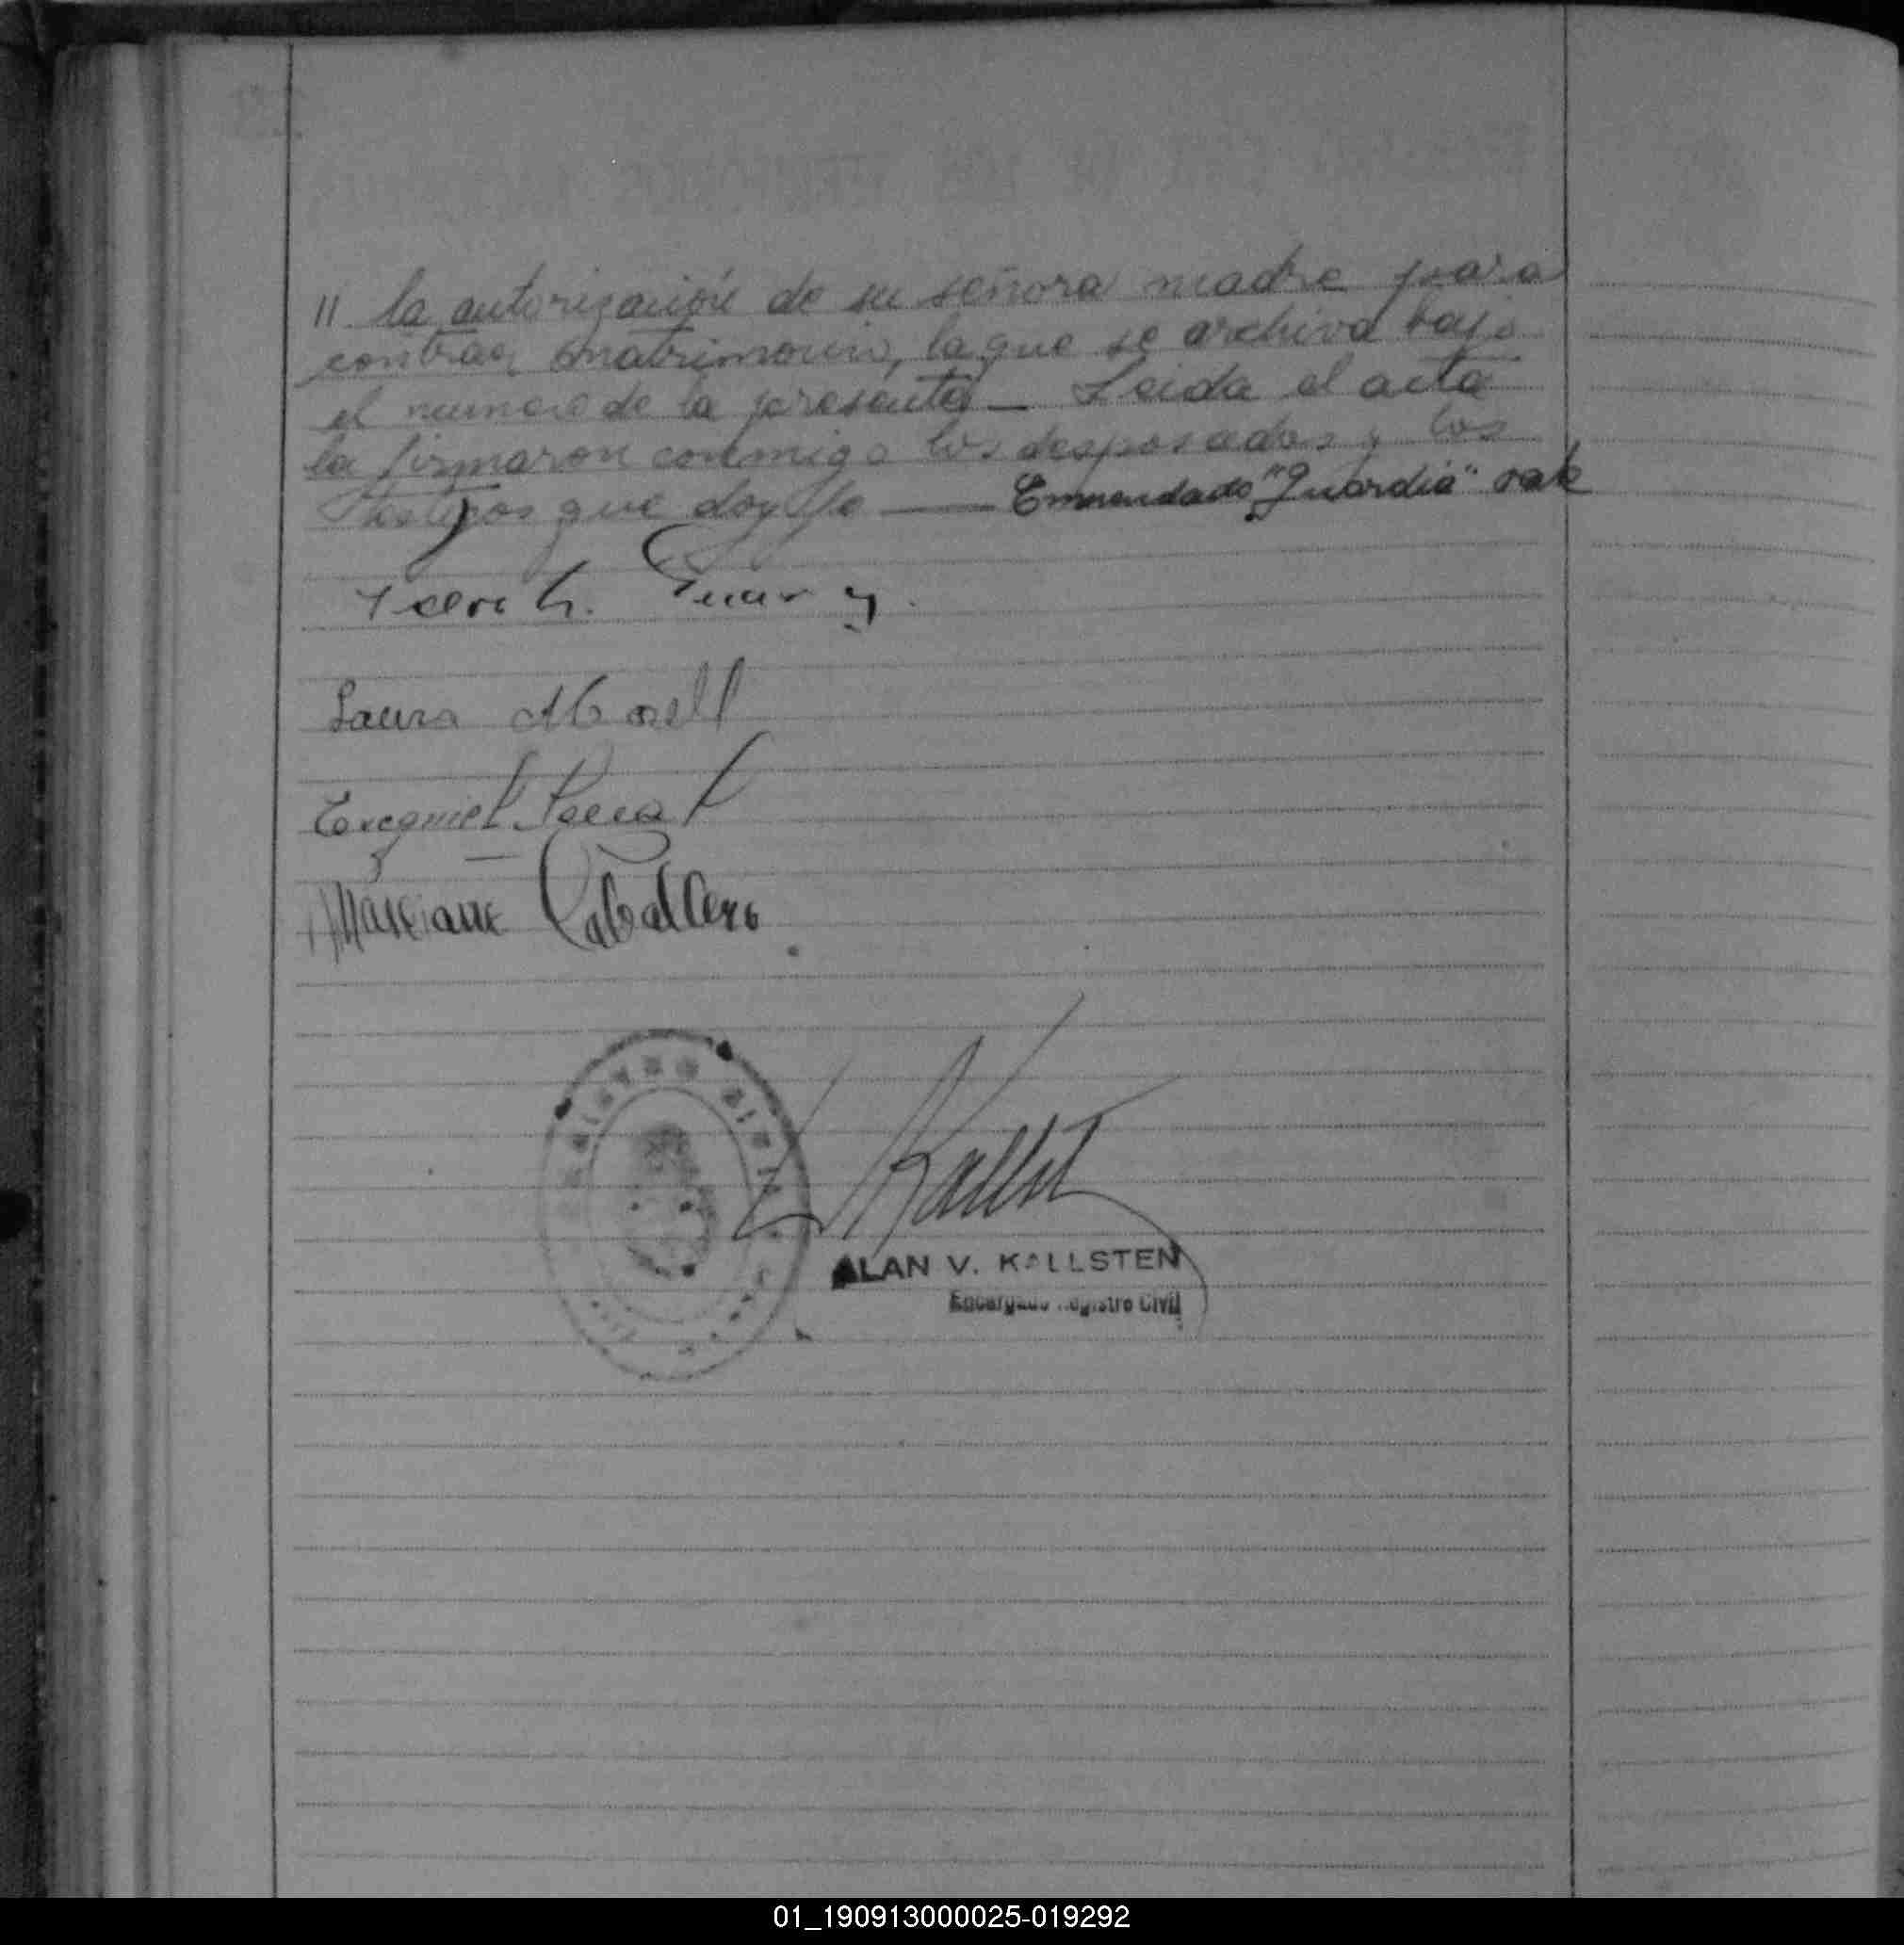 11 la autorización de su señora madre para
contraer matrimonio, la que se archiva bajo
el numero de la presente — Leida el acta
la firmaron conmigo los desposados y los
testigos que doy fe — Enmendado "Guardia" vale
Laura Morell
Ezequiel
Marciano Caballero
ALAN V. KALLSTEN
Encargado Registro Civil
01_190913000025-019292